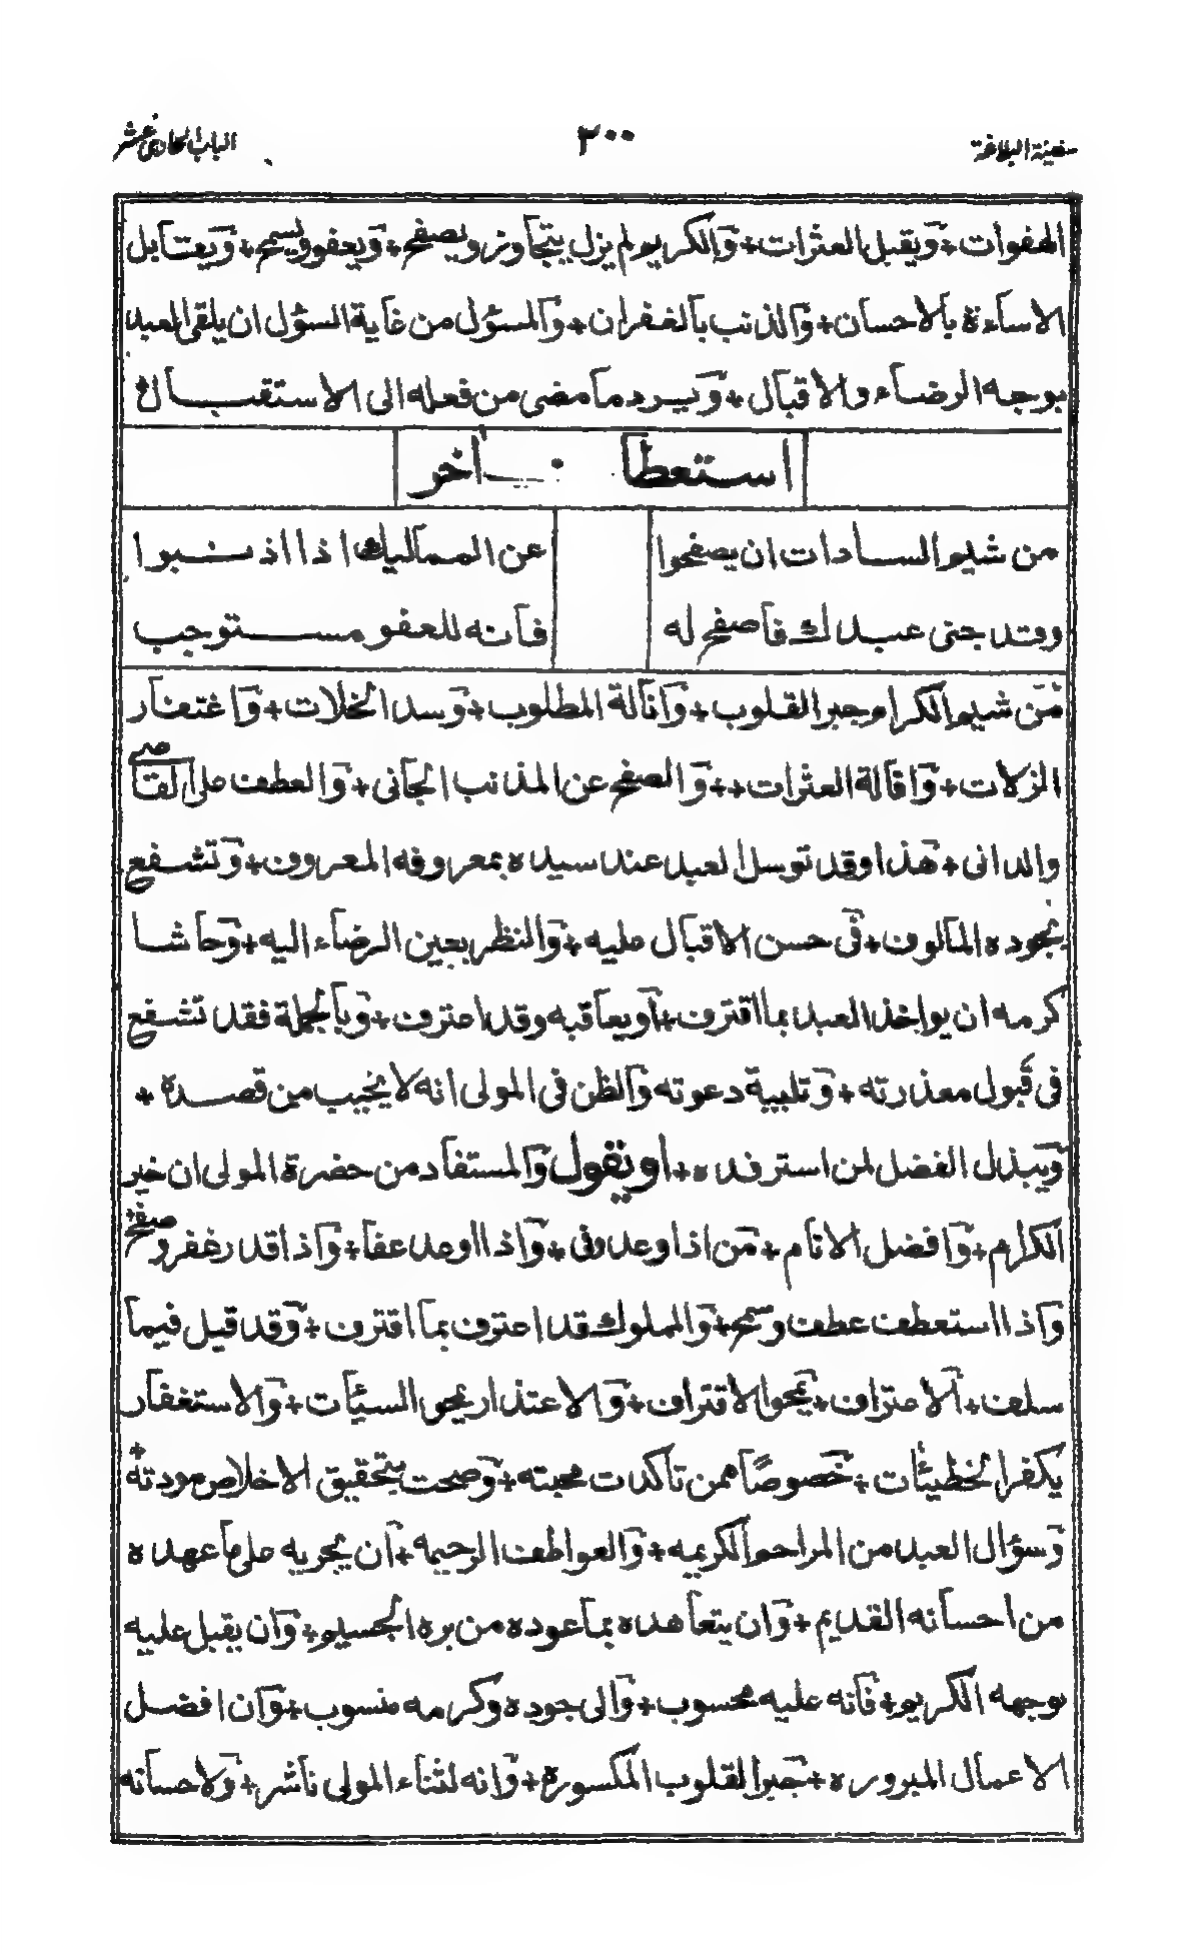 سفينة البلاغة
٣٠٠
الباب الحادي عشر
الهفوات + ويقبل العثرات + والكريم لم يزل يتجاوز ويصفح + ويعفو ويسمح + ويقابل
الاساءة بالاحسان + والذنب بالغفران + والمسؤل من غاية السؤل ان يلقى العبد
بوجه الرضاء والاقبال + ويسرد ما مضى من فعله الى الاستقبال
استعطاف آخر
من شيم السادات ان يصفحوا عن المماليك اذا اذنبوا
وقد جنى عبدك فاصفح له فانه للعفو مستوجب
من شيم الكرام جبر القلوب + وانالة المطلوب + وسد الخلات + واغتفار
الزلات + واقالة العثرات + + والصفح عن المذنب الجانى + والعطف على القاصى
والدانى + هذا وقد توسل العبد عند سيده بمعروفه المعروف + وتشفع
بجوده المالوف + فى حسن الاقبال عليه + والنظر بعين الرضاء اليه + وحاشا
كرمه ان يواخذ العبد بما اقترف + او يعاقبه وقد اعترف + وبالجملة فقد تشفع
فى قبول معذرته + وتلبية دعوته والظن فى المولى انه لا يخيب من قصده +
ويبذل الفضل لمن استرفده + او يقول والمستفاد من حضرة المولى ان خير
الكرام + وافضل الانام + من اذا وعد وفى + واذا اوعد عفا + واذا قدر غفر وصفح +
واذا استعطف عطف وسمح + والمملوك قد اعترف بما اقترف + وقد قيل فيما
سلف + الاعتراف + يمحو الاقتراف + والاعتذار يمحو السيئات + والاستغفار
يكفر الخطيئات + خصوصًا ممن تاكدت محبته + وصحت بتحقيق الاخلاص مودته +
وسؤال العبد من المراحم الكريمه + والعواطف الرحيمه + ان يجريه على ما عهده
من احسانه القديم + وان يتعاهده بما عوده من بره الجسيم + وان يقبل عليه
بوجهه الكريم + فانه عليه محسوب + والى جوده وكرمه منسوب + وان افضل
الاعمال المبروره + جبر القلوب المكسورة + وانه لثناء المولى ناشر + ولاحسانه